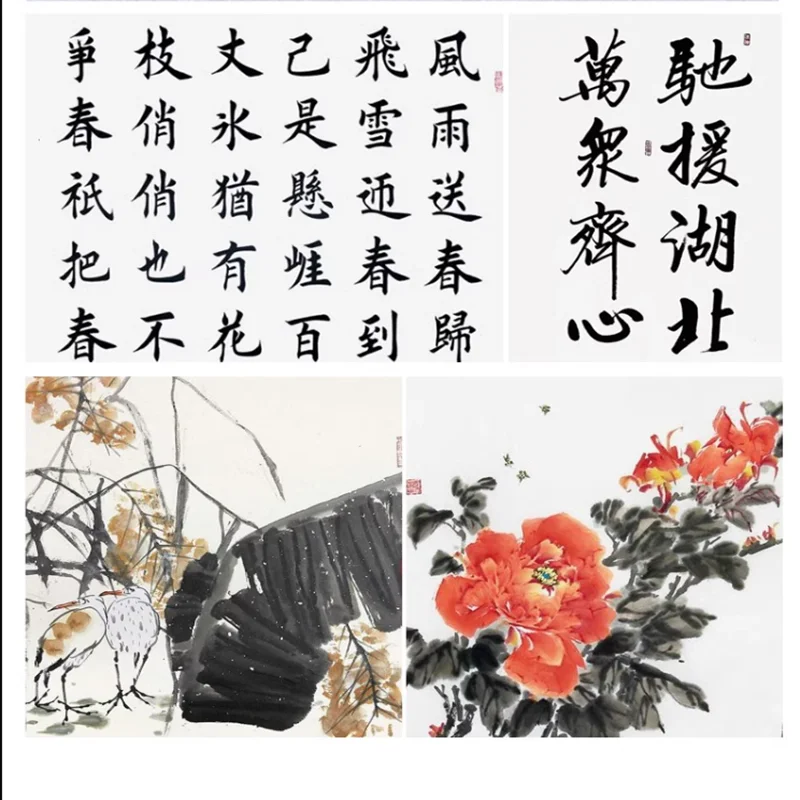 風雨送春歸
飛雪迎春到
己是懸崕百
丈氷猶有花
枝俏俏也不
爭春祗把春
馳援湖北
萬衆齊心